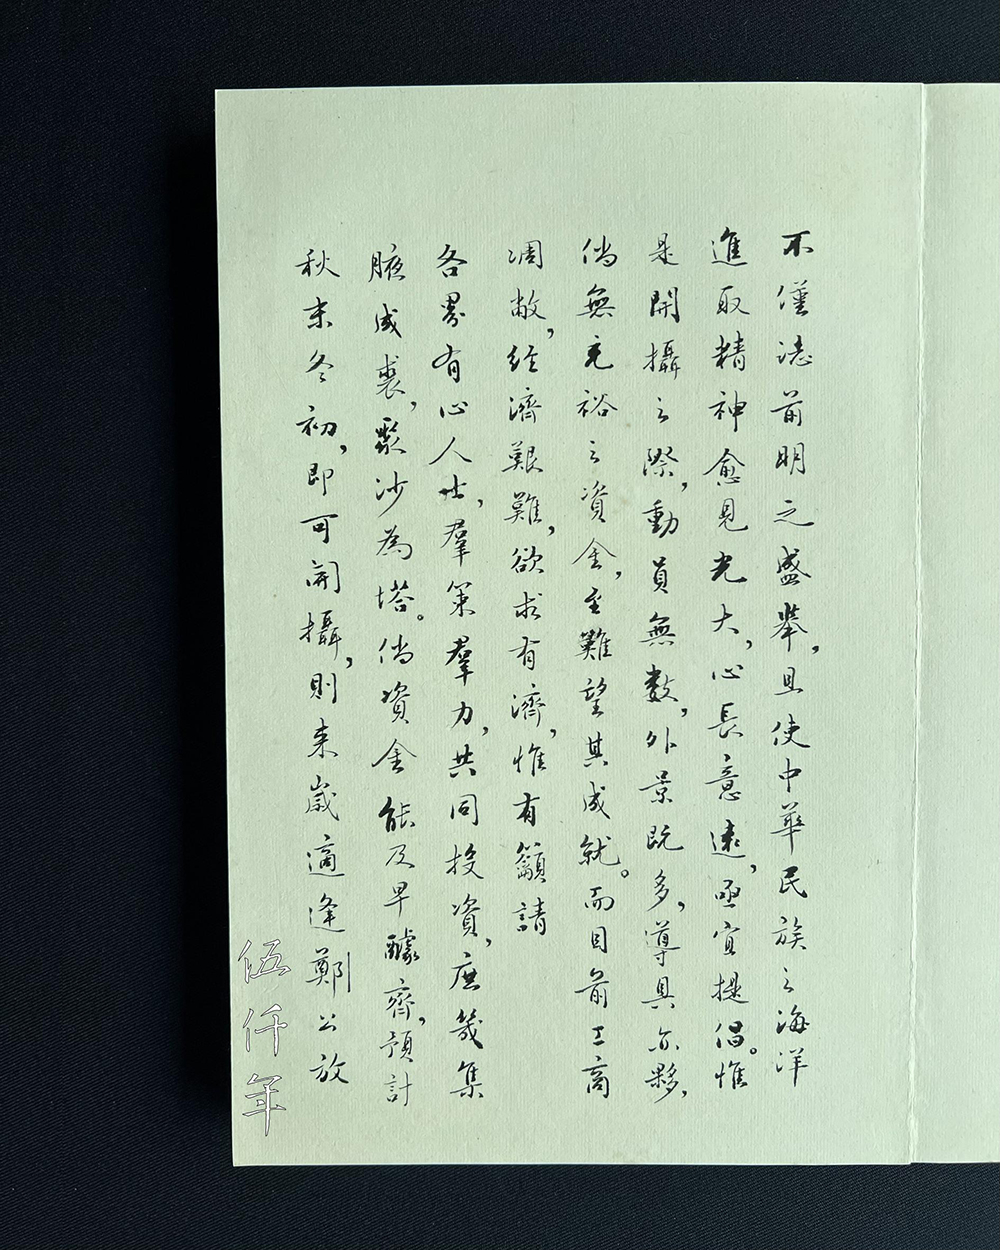 不僅誌前明之盛舉，且使中華民族之海洋
進取精神愈見光大，心長意遠，亟宜提倡。惟
是開攝之際，動員無數，外景既多，導具亦夥，
倘無充裕之資金，至難望其成就。而目前工商
凋敝，經濟艱難，欲求有濟，惟有籲請
各界有心人士，羣策羣力，共同投資，庶幾集
腋成裘，聚沙為塔。倘資金能及早醵齊，預計
秋末冬初，即可開攝，則来歲適逢鄭公放
伍仟年